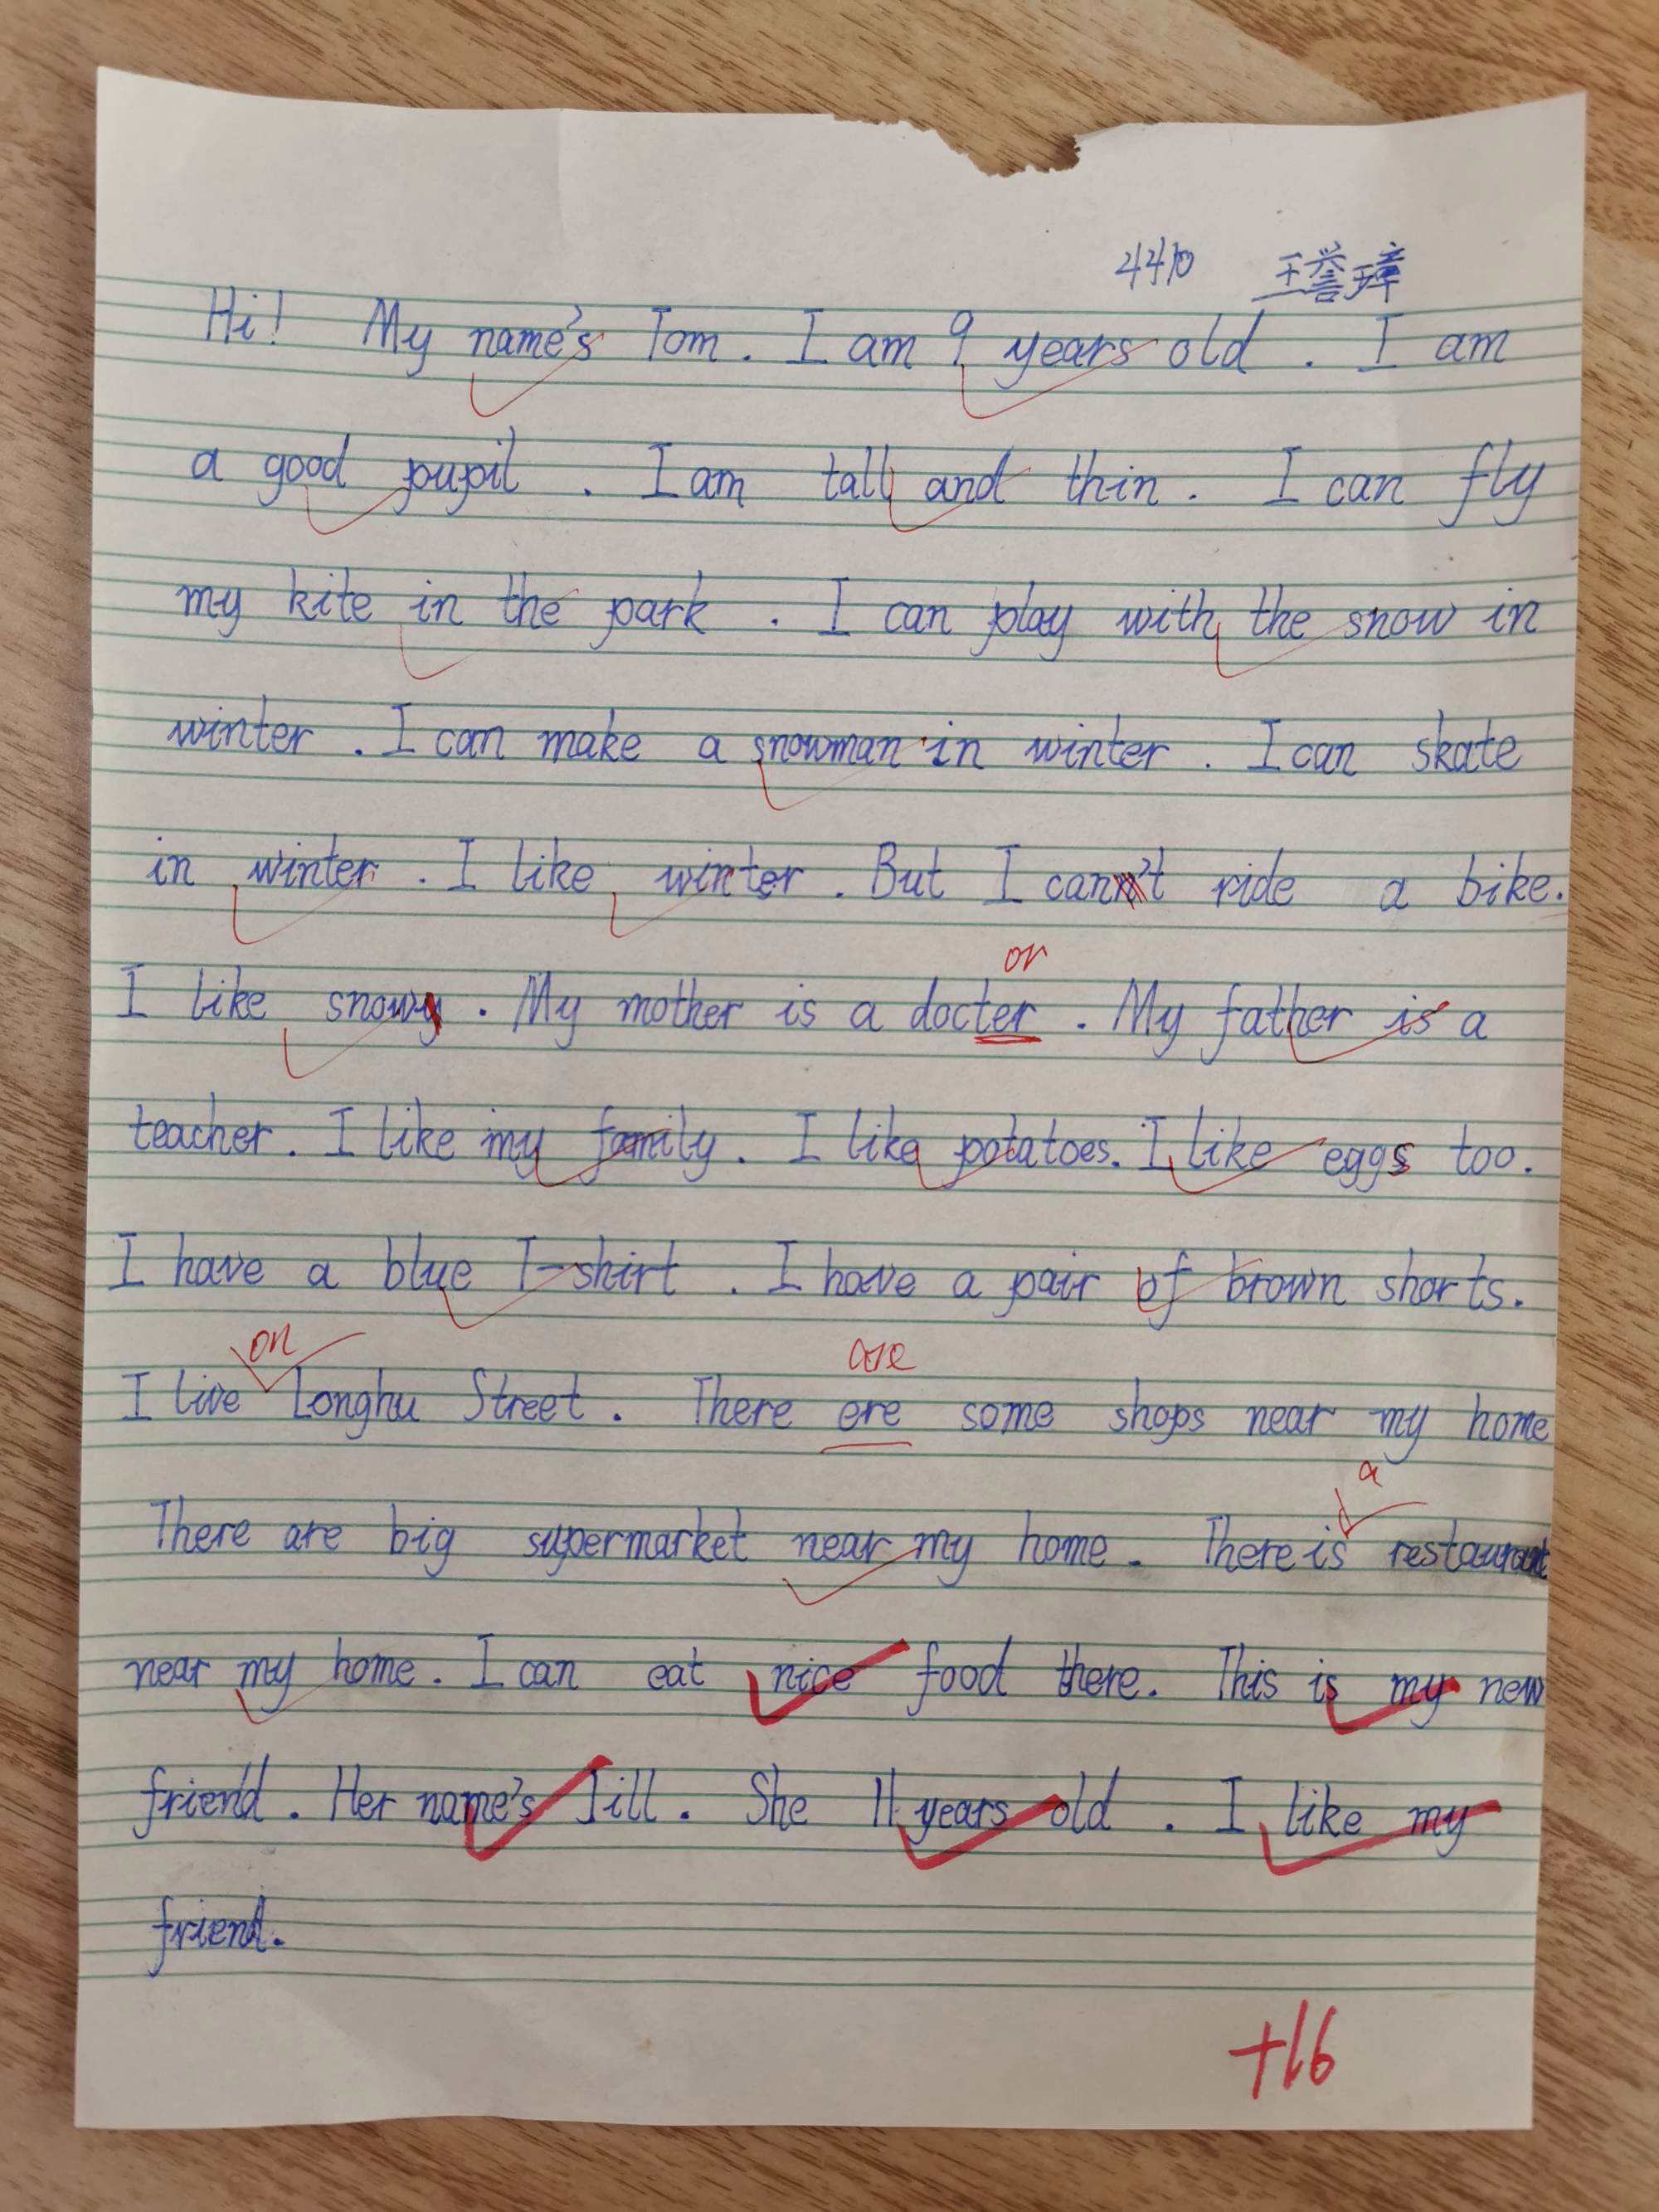 4410 王誉璋
Hi! My name's Tom. I am 9 years old. I am
a good pupil. I am tall and thin. I can fly
my kite in the park. I can play with the snow in
winter. I can make a snowman in winter. I can skate
in winter. I like winter. But I cann't ride a bike.
or
I like snowy. My mother is a docter. My father is a
teacher. I like my family. I like potatoes. I like eggs too.
I have a blue T-shirt. I have a pair of brown shorts.
on are
I live Longhu Street. There ere some shops near my home
a
There are big supermarket near my home. There is restaurant
near my home. I can eat nice food there. This is my new
friend. Her name's Jill. She 11 years old. I like my
friend.
+16